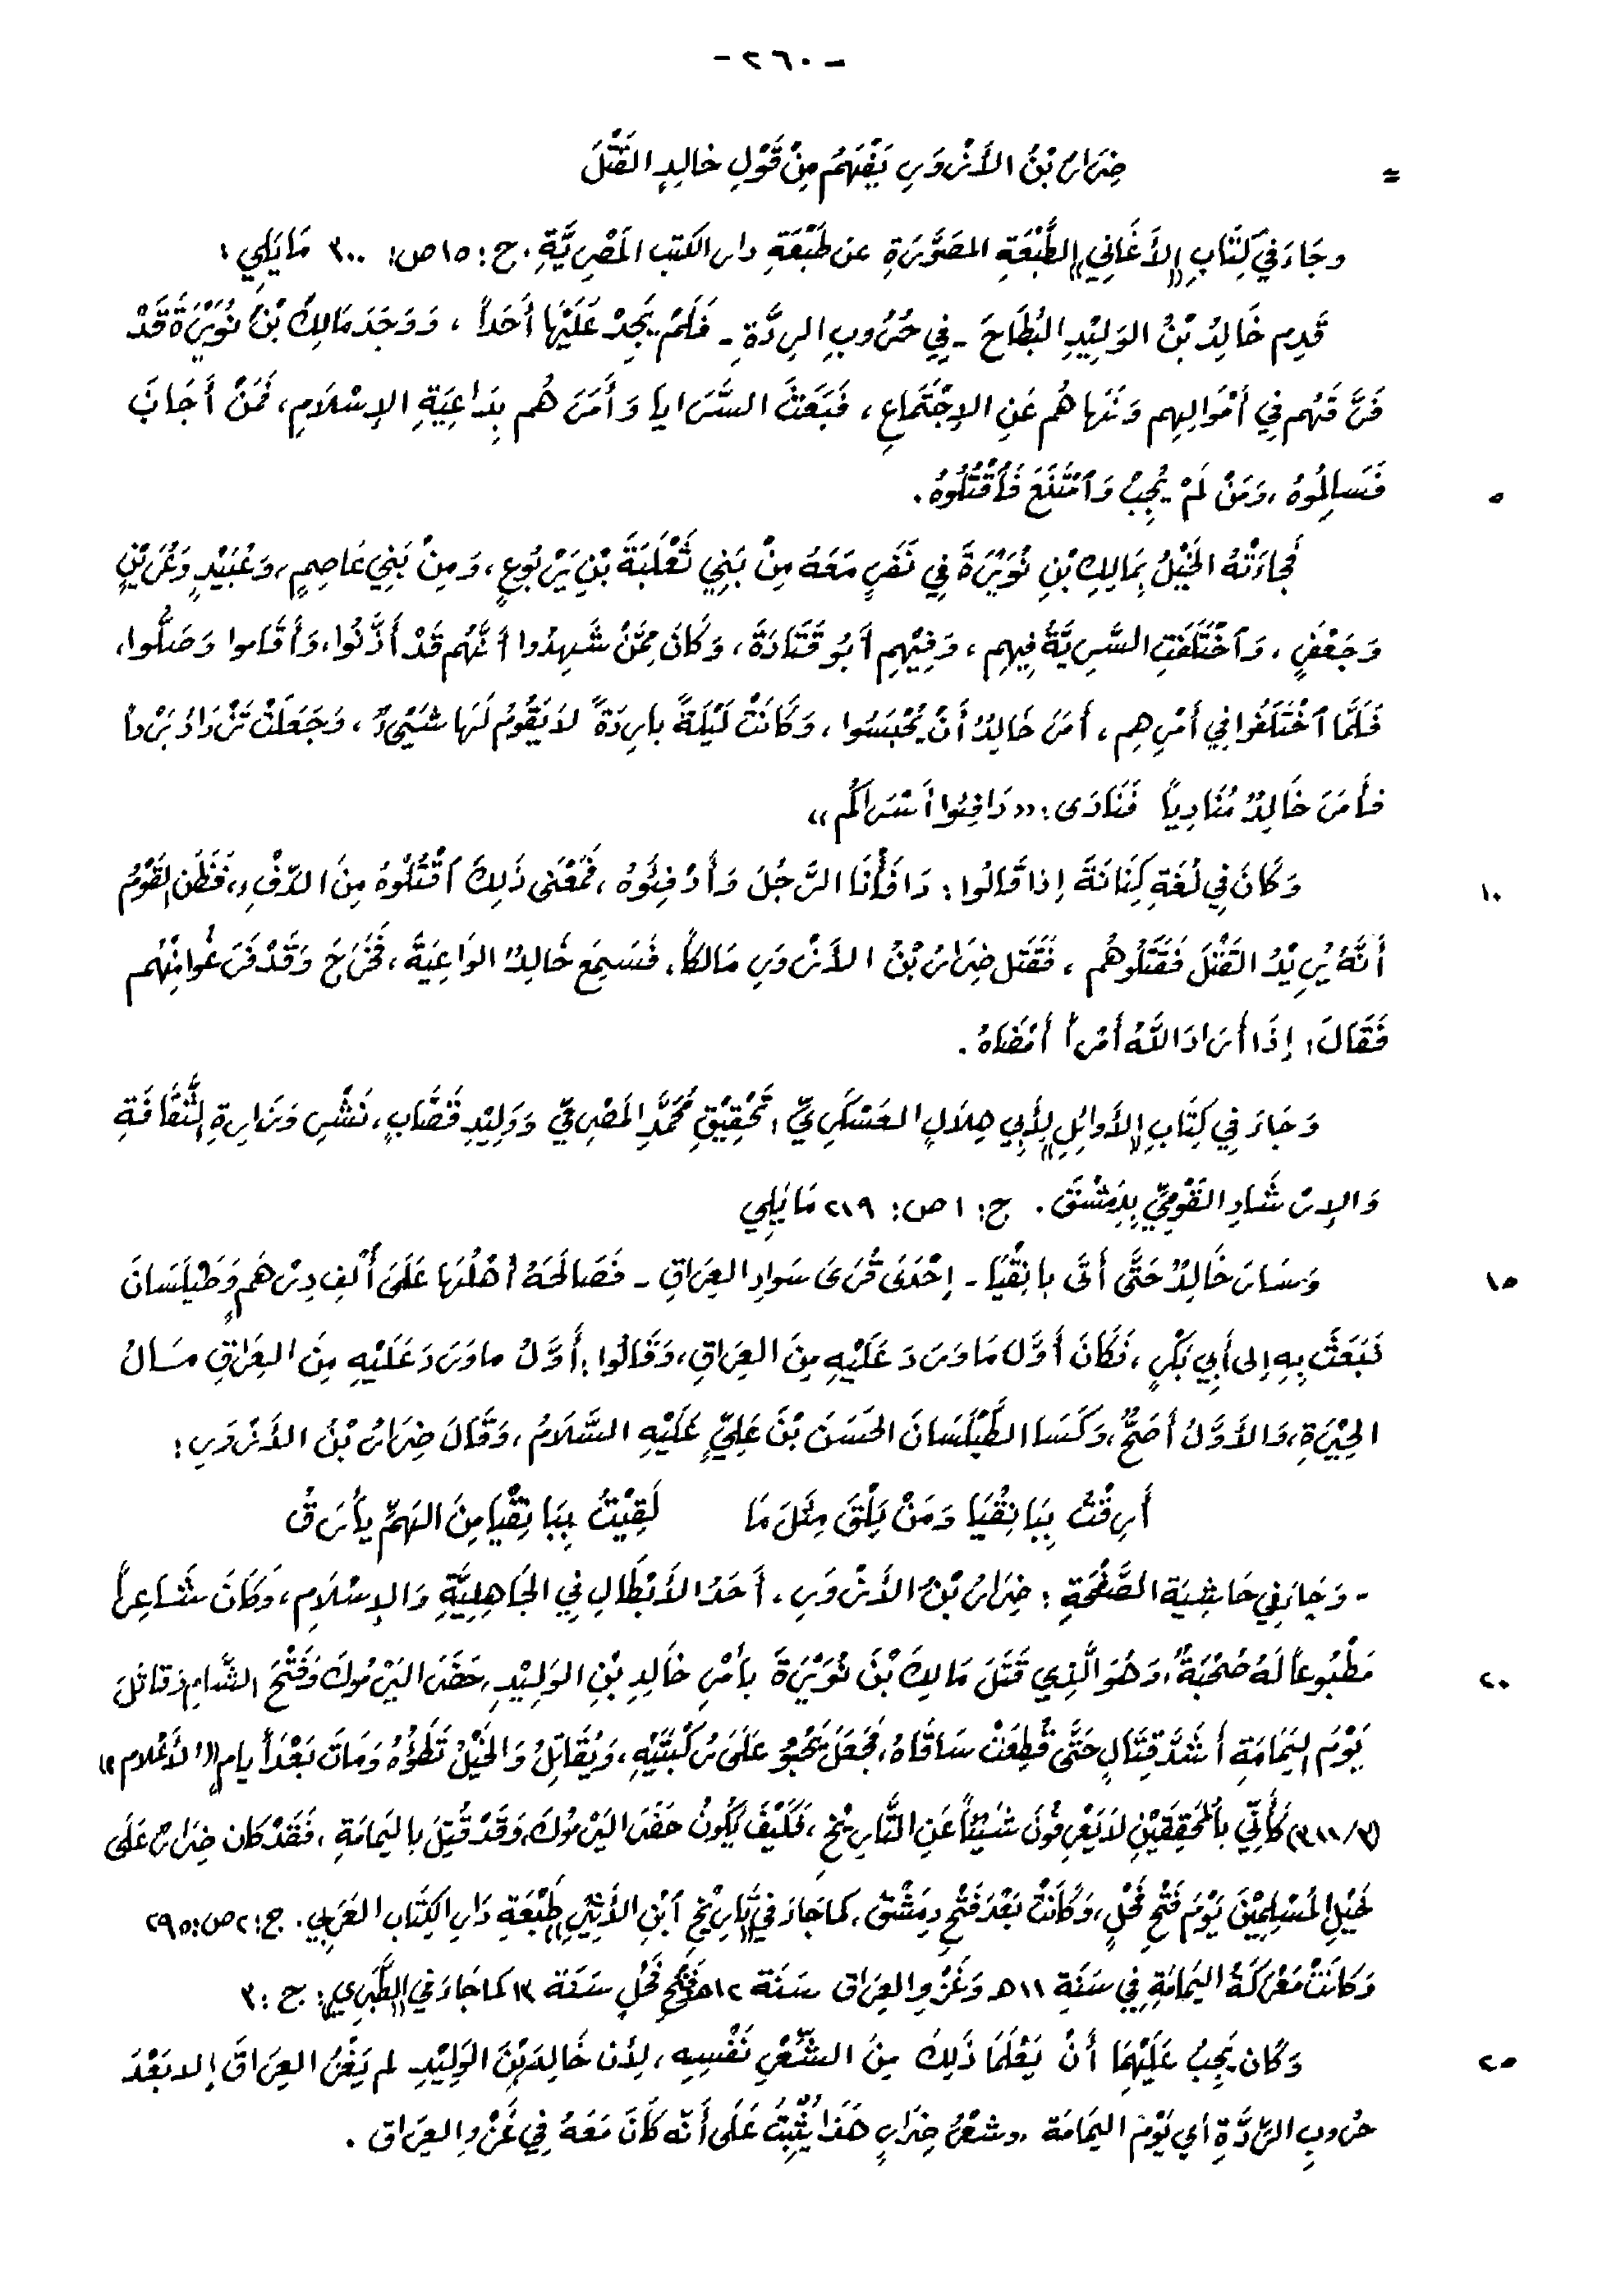 - ٢٦٠ -
= ضِرَارُ بْنُ الأَزْوَرِ يَفْهَمُ مِنْ قَوْلِ خالِدٍ القَتْلَ
وجَاءَ في كِتَابِ «الأَغَانِي» الطَّبْعَةِ المصَوَّرَةِ عن طَبْعَةِ دار الكتب المَصْرِيَّةِ. ج: ١٥ ص: ٣٠٠ مَا يَلِي:
قَدِم خَالِدُ بْنُ الوَلِيْدِ البُطَاحَ - فِي حُرُوبِ الرِدَّةِ - فَلَمْ يَجِدْ عَلَيْهَا أَحَداً ، وَوَجَدَ مَالِكَ بْنَ نُوَيْرَةَ قَدْ
فَرَّقَهُم فِي أَمْوَالِهِم وَنَهَاهُم عَنِ الإِجْتَمَاعِ ، فَبَعَثَ السَّرَايا وَأَمَرَهُم بِدَاعِيَةِ الإِسْلَامِ ، فَمَنْ أَجَابَ
٥ فَسَالِمُوهُ ، وَمَنْ لَمْ يُجِبْ وَٱمْتَنَعَ فَٱقْتُلُوهُ .
فَجَاءَتْهُ الخَيْلُ بِمَالِكِ بْنِ نُوَيْرَةَ فِي نَفَرٍ مَعَهُ مِنْ بَنِي ثَعْلَبَةَ بْنِ يَرْبُوعٍ ، وَمِنْ بَنِي عَاصِمٍ ، وَعُبَيْدٍ وَعُرَيْنٍ
وَجَعْفَرٍ ، وَٱخْتَلَفَتِ السَّرِيَّةُ فِيهِم ، وَفِيْهِم أَبُو قَتَادَةَ ، وَكَانَ مِمَّنْ شَهِدُوا أَنَّهُم قَدْ أَذَّنُوا ، وَأَقَاموا وَصَلُّوا ،
فَلَمَّا ٱخْتَلَفُوا فِي أَمْرِهِم ، أَمَرَ خَالِدٌ أَنْ يُحْبَسُوا ، وَكَانَتْ لَيْلَةً بارِدَةً لاَ يَقُومُ لَهَا شَيْيءٌ ، وَجَعَلَتْ تَزْدَادُ بَرْداً
فأَمَرَ خَالِدٌ مُنَادِياً فَنَادَى : «دَافِئُوا أَسْرَاكُم»
١٠ وَكَانَ فِي لُغَةِ كِنَانَةَ إذا قَالُوا : دَافَأْنَا الرَّجُلَ وَأَدْفِئُوهُ ، فَمَعْنَى ذَلِكَ ٱقْتُلُوهُ مِنَ الدِّفْءِ ، فَظَنَّ القَوْمُ
أَنَّهُ يُرِيْدُ القَتْلَ فَقَتَلُوهُم ، فَقَتَل ضِرَارُ بْنُ الأَزْوَرِ مَالكاً ، فَسَمِعَ خَالِدٌ الوَاعِيَةَ ، فَخَرَجَ وَقَدْ فَرَغُوا مِنْهُم
فَقَالَ : إذَا أَرَادَ اللَّهُ أَمْراً أَمْضَاهُ .
وَجَاءَ فِي كِتَابِ «الأَوَائِلِ» لِأَبِي هِلَالٍ العَسْكَرِيِّ ، تَحْقِيْقِ مُحَمَّدٍ المَصْرِيِّ وَوَلِيْدِ قَصَّابٍ ، نَشْرِ وَزَارةِ الثَّقَافَةِ
وَالإِرْشَادِ القَوْمِيِّ بِدِمَشْقَ . ج: ١ ص: ٢١٩ مَا يَلِي
١٥ وَسَارَ خَالِدٌ حَتَّى أَتَى بانِقْيَا - إحْدَى قُرَى سَوَادِ العِرَاقِ - فَصَالَحَهُ أَهْلُهَا عَلَى أَلْفِ دِرْهَمٍ وَطَيْلَسَانَ
فَبَعَثَ بِهِ إلى أَبِي بَكْرٍ ، فَكَانَ أَوَّلَ مَا وَرَدَ عَلَيْهِ مِنَ العِرَاقِ ، وَقَالُوا : أَوَّلُ ما وَرَدَ عَلَيْهِ مِنَ العِرَاقِ مَالُ
الحِيْرَةِ ، وَالأَوَّلُ أَصَحُّ ، وَكَسَا الطَّيْلَسَانَ الحَسَنَ بْنَ عَلِيٍّ عَلَيْهِ السَّلَامُ ، وَقَالَ ضِرَارُ بْنُ الأَزْوَرِ :
أَرِقْتُ بِبَانِقْيَا وَمَنْ يَلْقَ مِثْلَ مَا لَقِيْتُ بِبَانِقْيَا مِنَ الهَمِّ يأْرَقُ
- وَجَاءَ فِي حَاشِيَةِ الصَّفْحَةِ : ضِرَارُ بْنُ الأَزْوَرِ ، أَحَدُ الأَبْطَالِ فِي الجَاهِلِيَّةِ وَالإِسْلَامِ ، وَكَانَ شَاعِراً
٢٠ مَطْبُوعاً لَهُ صُحْبَةٌ ، وَهُوَ الَّذِي قَتَلَ مَالِكَ بْنَ نُوَيْرَةَ بأَمْرِ خَالِدِ بْنِ الوَلِيْدِ ، حَضَرَ اليَرْمُوكَ وَفَتْحَ الشَّامِ وَقاتَلَ
يَوْمَ اليَمَامَةِ أَشَدَّ قِتَالٍ حَتَّى قُطِعَتْ سَاقَاهُ ، فَجَعَلَ يَحْبُو عَلَى رُكْبَتَيْهِ ، وَيُقَاتِلُ وَالخَيْلُ تَطَؤُهُ وَمَاتَ بَعْدَ أيامٍ «الأَعْلام»
(٣/ ٣١١) كَأَنِّي بالمُحَقِقَيْنِ لاَ يَعْرِفُونَ شَيْئاً عَنِ التَّارِيْخِ ، فَكَيْفَ يَكُونُ حَضَرَ اليَرْمُوكَ ، وَقَدْ قُتِلَ بِاليَمَامَةِ ، فَقَدْ كَان ضِرَارٌ عَلَى
خَيْلِ المُسْلِمِيْنَ يَوْمَ فَتْحِ فَحْلٍ ، وَكَانَتْ بَعْدَ فَتْحِ دِمَشْقَ ، كما جَاءَ في «تَارِيْخِ ٱبْنِ الأَثِيْرِ» طَبْعَةِ دَارِ الكِتَابِ العَرَبِي . ج: ٢ ص: ٢٩٥
وَكَانَتْ مَعْرَكَةُ اليَمَامَةِ فِي سَنَةِ ١١ هـ وَغَزْوِ العِرَاق سَنَة ١٢ هـ وَفَتْحِ فَحْلٍ سَنَة ١٣ كما جَاءَ في «الطَّبَرِي»: ج : ٣
٢٥ وَكَان يَجِبُ عَلَيْهِمَا أَنْ يَعْلَمَا ذَلِكَ مِنَ الشِّعْرِ نَفْسِهِ ، لِأَن خَالِدَ بْنَ الوَلِيْدِ لم يَغْزُ العِرَاقَ إلا بَعْدَ
حُرُوبِ الرِّدَّةِ أَي يَوْمَ اليَمَامَة ، وشعْرُ ضِرَارٍ هَذَا يُثْبِتُ عَلَى أَنَّه كَانَ مَعَهُ فِي غَزْوِ العِرَاق .